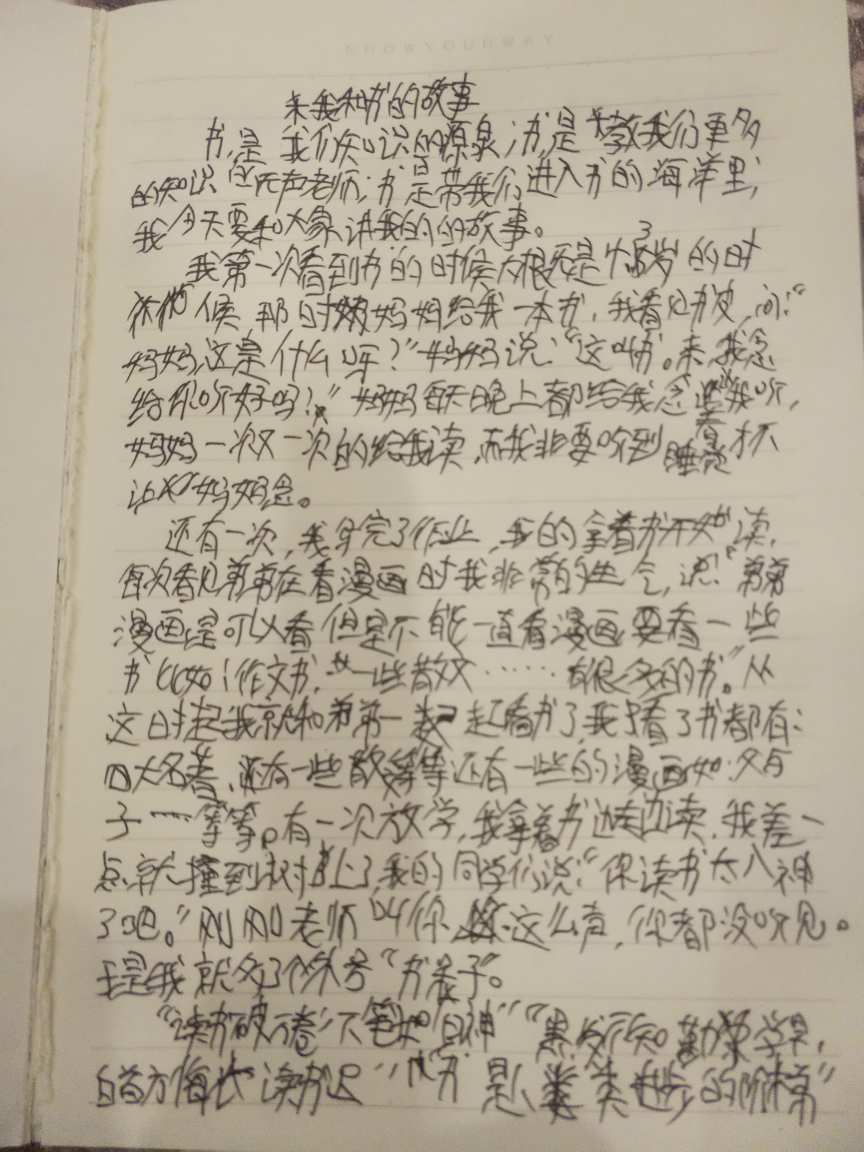 KNOWYOURWAY
来我和书的故事
书,是我们知识的源泉;书,是教我们更多
的知识的无声老师;书是带我们进入书的海洋里,
我今天要和大家讲我的的故事。
我第一次看到书的时候大概是3岁的时
候那时妈妈给我一本书,我看见书皮,问:“
妈妈,这是什么呀?”妈妈说:“这叫书。来,我念
给你听好吗?”妈妈每天晚上都给我念我听,
妈妈一次又一次的给我读,而我非要听到睡着才不
让妈妈念。
还有一次,我写完了作业,我的拿着书开始读,
每次看见弟弟在看漫画时我非常的生气,说:“弟弟
漫画是可以看但是不能一直看漫画要看一些
书比如:作文书,一些散文……有很多的书。”从
这时起我就和弟弟一起看书了,我看了书都有:
四大名著、还有一些散文等等还有一些的漫画如:父与
子……等等。有一次放学,我拿着书边走边读,我差一
点就撞到树上了,我的同学们说:“你读书太入神
了吧。”刚刚老师叫你这么声,你都没听见。
于是我就多了个外号“书呆子”。
“读书破万卷,下笔如有神”“黑发不知勤学早,
白首方悔读书迟”“书是人类进步的阶梯”